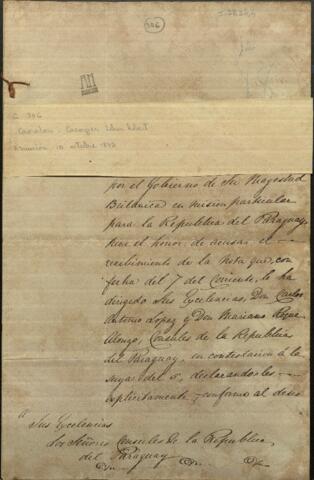 306
C 306
Asunción 10 octubre 1842
por el Gobierno de Su Magestad
Britanica en mision particular
para la Republica del Paraguay,
tiene el honor de acusar el
recibimiento de la Nota que, con
fecha del 7 del Corriente, le ha
dirigido Sus Excelencias, Don Carlos
Antonio Lopez y Don Mariano Roque
Alonzo, Consules de la Republica
del Paraguay, en contestacion à la
suya del 5, declarandoles
esplicitamente, conforme al deseo
a
Sus Excelencias
Los Señores Consules de la Republica
del Paraguay